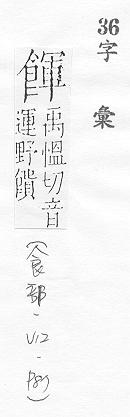 36
字彙
餫
禹慍切音
運野饋
(食部-V12-